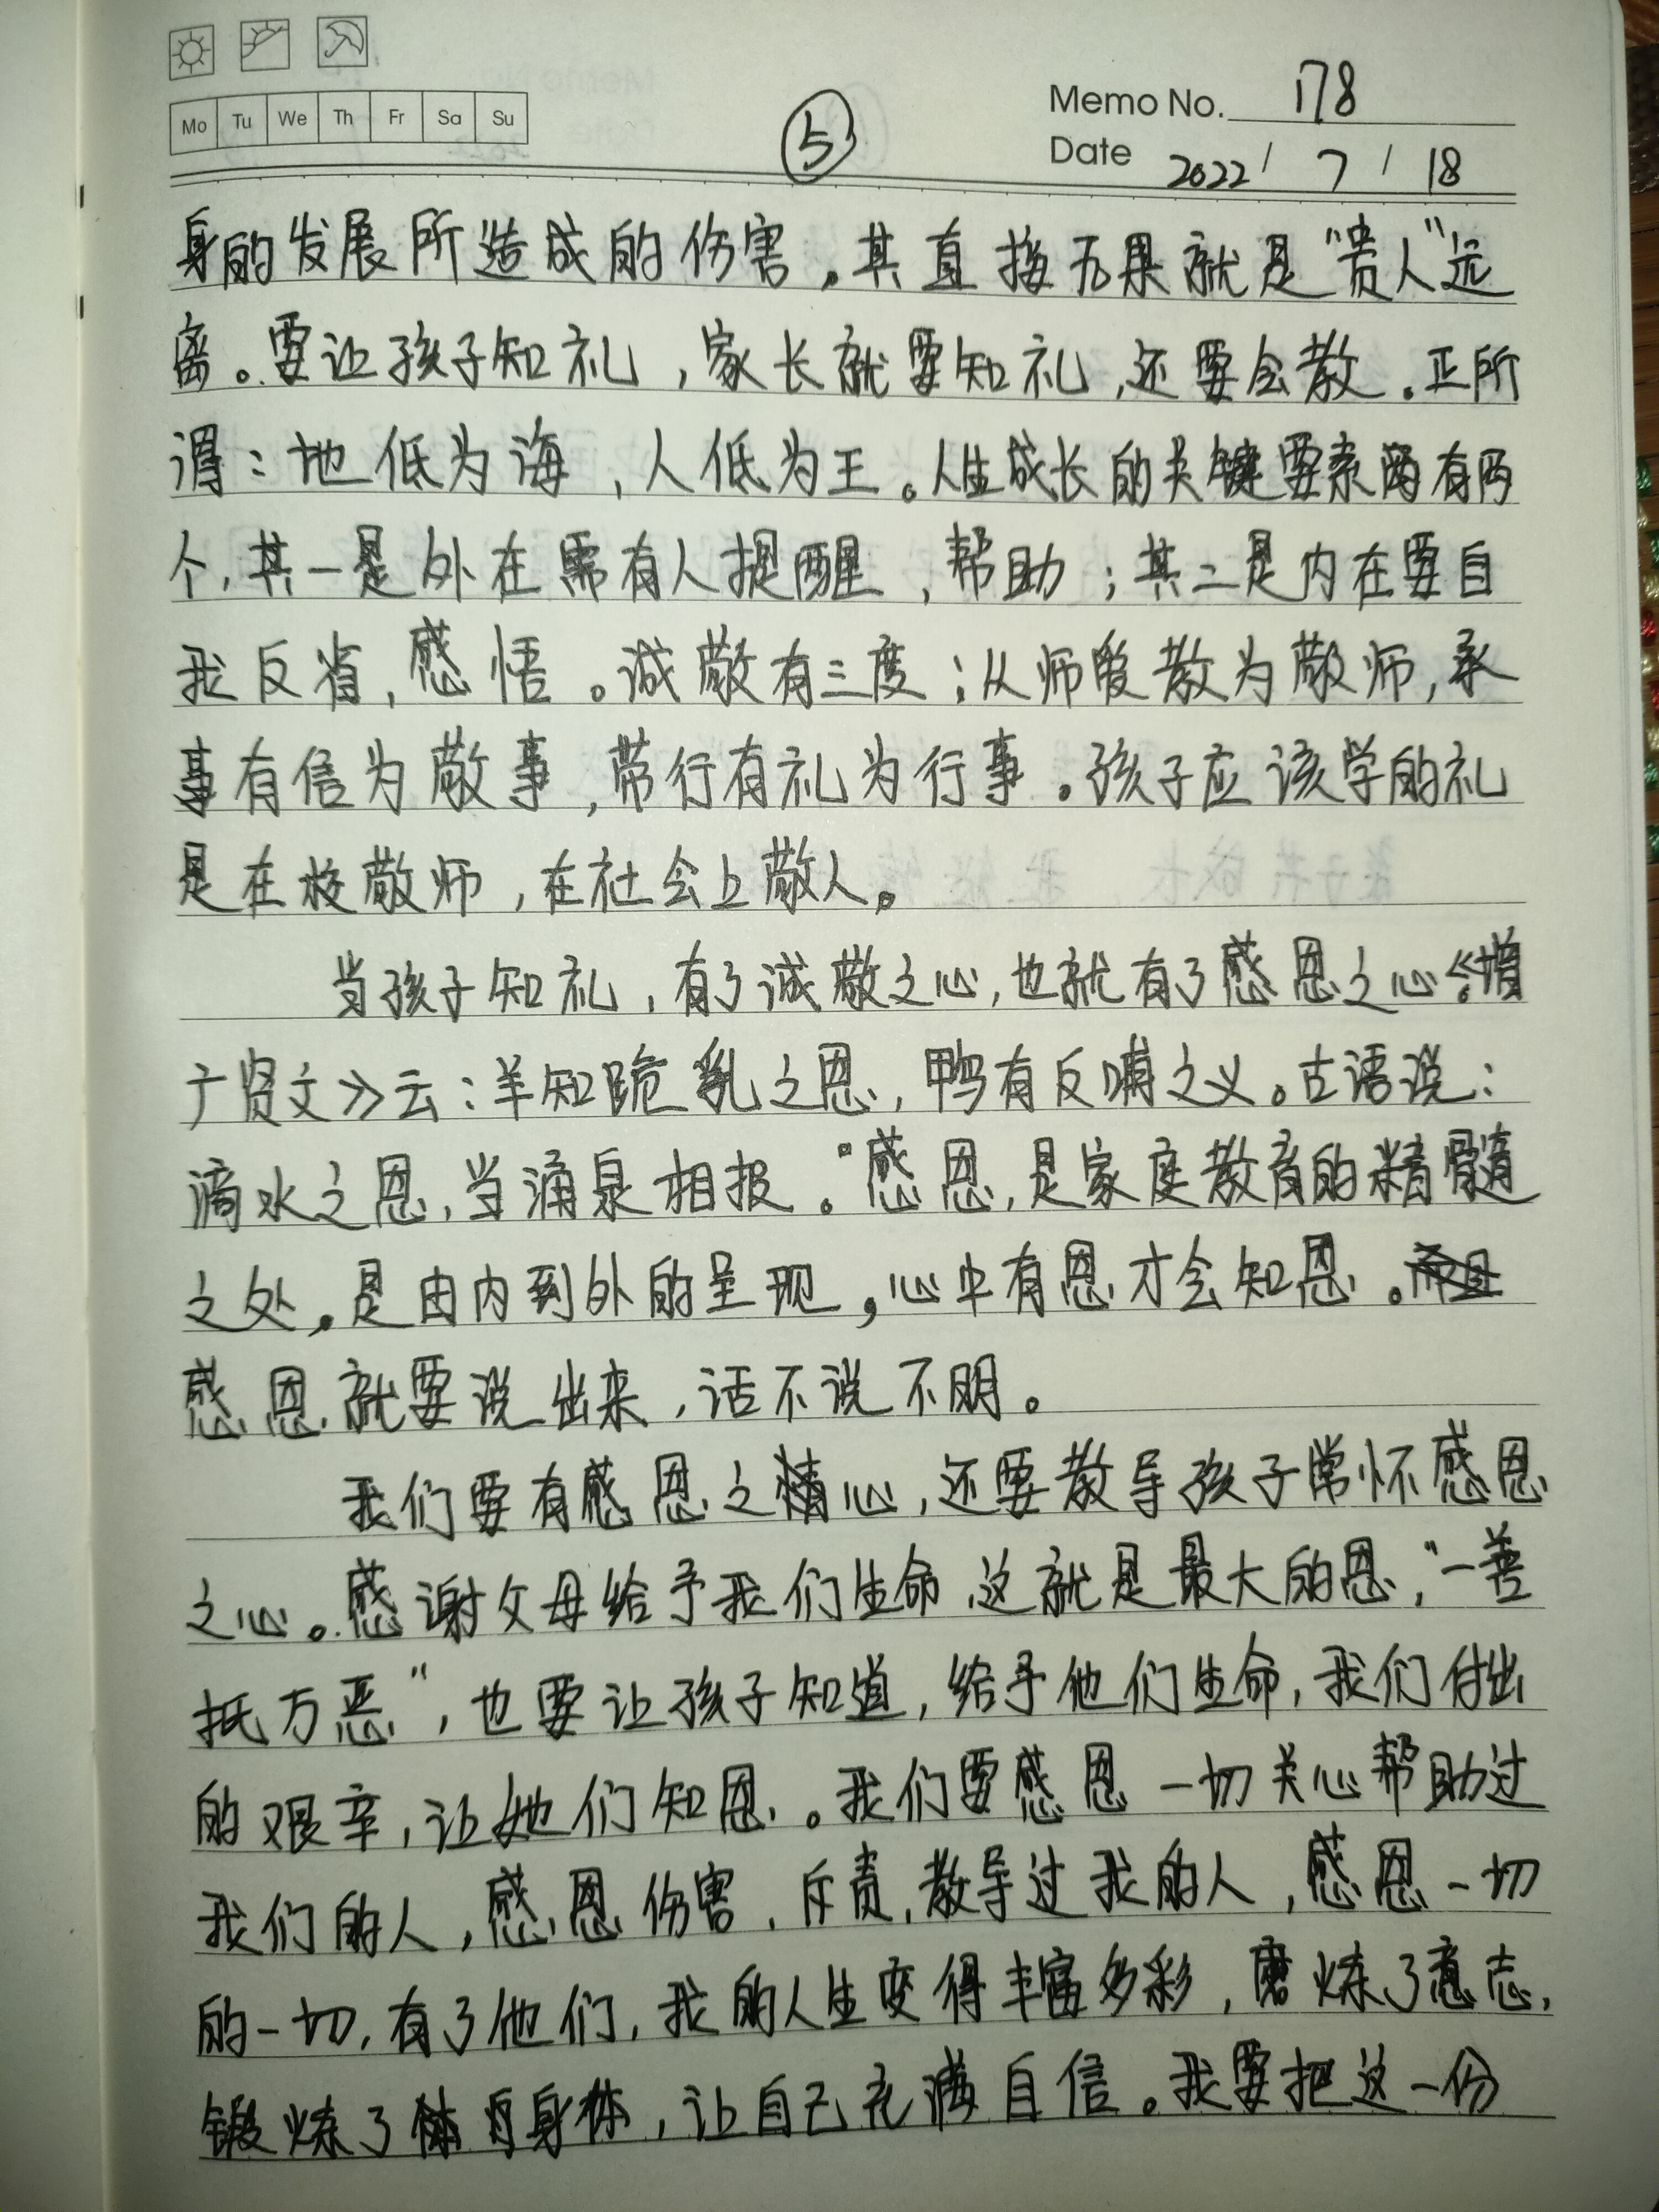 Mo Tu We Th Fr Sa Su
⑤
Memo No. 178
Date 2022 / 7 / 18
身的发展所造成的伤害。其直接后果就是“贵人”远
离。要让孩子知礼，家长就要知礼，还要会教。正所
谓：地低为海，人低为王。人生成长的关键要素有两
个，其一是外在需有人提醒，帮助；其二是内在要自
我反省，感悟。诚敬有三度；从师爱教为敬师，承
事有信为敬事，带行有礼为行事。孩子应该学的礼
是在校敬师，在社会上敬人。
当孩子知礼，有了诚敬之心，也就有了感恩之心。《增
广贤文》云：羊知跪乳之恩，鸭有反哺之义。古语说：
滴水之恩，当涌泉相报。“感恩，是家庭教育的精髓
之处。是由内到外的呈现，心中有恩才会知恩。
感恩就要说出来，话不说不明。
我们要有感恩之心，还要教导孩子常怀感恩
之心。感谢父母给予我们生命，这就是最大的恩，“一善
抵万恶”，也要让孩子知道，给予他们生命，我们付出
的艰辛，让她们知恩。我们要感恩一切关心帮助过
我们的人，感恩伤害，斥责，教导过我的人，感恩一切
的一切，有了他们，我的人生变得丰富多彩，磨炼了意志，
锻炼了身体，让自己充满自信。我要把这一份